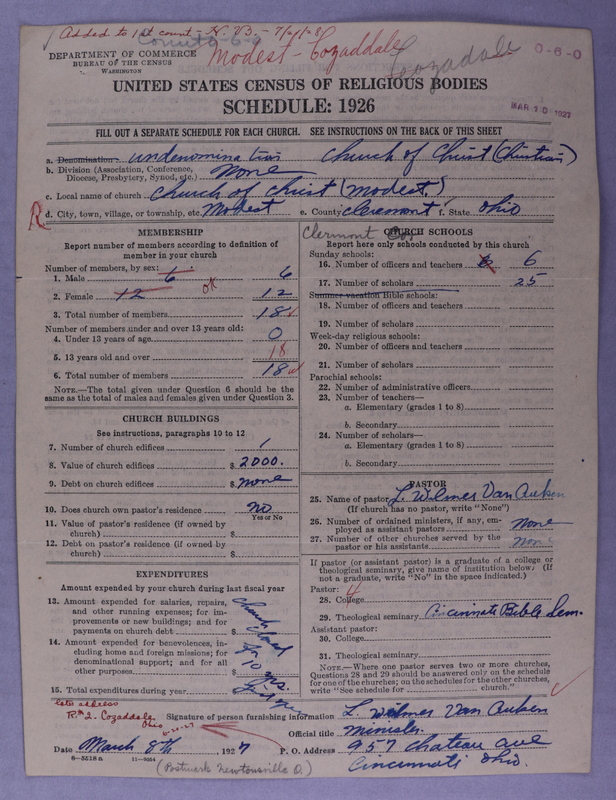 Added to 1st count - N. B. - 7/21/28
Count 9-6-9
Modest - Cozaddale
Cozadale
0-6-0
DEPARTMENT OF COMMERCE
BUREAU OF THE CENSUS
WASHINGTON
MAR 10 1927
UNITED STATES CENSUS OF RELIGIOUS BODIES
SCHEDULE: 1926
FILL OUT A SEPARATE SCHEDULE FOR EACH CHURCH. SEE INSTRUCTIONS ON THE BACK OF THIS SHEET
a. Denomination undenomination Church of Christ (Christian)
b. Division (Association, Conference, Diocese, Presbytery, Synod, etc.) None
c. Local name of church Church of Christ (Modest.)
R d. City, town, village, or township, etc. Modest e. County Cleremont f. State Ohio
Clermont Co.
MEMBERSHIP
Report number of members according to definition of
member in your church
Number of members, by sex:
1. Male 6 6
2. Female 12 OK 12
3. Total number of members 18
Number of members under and over 13 years old:
4. Under 13 years of age 0
5. 13 years old and over 18
6. Total number of members 18
NOTE.—The total given under Question 6 should be the
same as the total of males and females given under Question 3.
CHURCH BUILDINGS
See instructions, paragraphs 10 to 12
7. Number of church edifices 1
8. Value of church edifices $ 2000.
9. Debt on church edifices $ None
10. Does church own pastor's residence? No
Yes or No
11. Value of pastor's residence (if owned by
church) $
12. Debt on pastor's residence (if owned by
church) $
EXPENDITURES
Amount expended by your church during last fiscal year
13. Amount expended for salaries, repairs,
and other running expenses; for im-
provements or new buildings; and for
payments on church debt $
14. Amount expended for benevolences, in-
cluding home and foreign missions; for
denominational support; and for all
other purposes $
15. Total expenditures during year $
Church closed
for
10 yrs.
CHURCH SCHOOLS
Report here only schools conducted by this church
Sunday schools:
16. Number of officers and teachers 6 6
17. Number of scholars 25
Summer vacation Bible schools:
18. Number of officers and teachers
19. Number of scholars
Week-day religious schools:
20. Number of officers and teachers
21. Number of scholars
Parochial schools:
22. Number of administrative officers
23. Number of teachers—
a. Elementary (grades 1 to 8)
b. Secondary
24. Number of scholars—
a. Elementary (grades 1 to 8)
b. Secondary
PASTOR
25. Name of pastor L. Wilmer Van Auken
(If church has no pastor, write "None")
26. Number of ordained ministers, if any, em-
ployed as assistant pastors None
27. Number of other churches served by the
pastor or his assistants None
If pastor (or assistant pastor) is a graduate of a college or
theological seminary, give name of institution below: (If
not a graduate, write "No" in the space indicated.)
Pastor: 4
28. College
29. Theological seminary Cincinnati Bible Sem.
Assistant pastor:
30. College
31. Theological seminary
NOTE.—Where one pastor serves two or more churches,
Questions 28 and 29 should be answered only on the schedule
for one of the churches; on the schedules for the other churches,
write "See schedule for church."
late address
R#2. Cozaddale,
Ohio
6-20-27
Signature of person furnishing information L. Wilmer Van Auken
Official title Minister.
Date March 8th, 1927 P. O. Address 957 Chateau ave
Cincinnati Ohio.
8-5518a 11-9064
(Postmark Newtonsville O.)